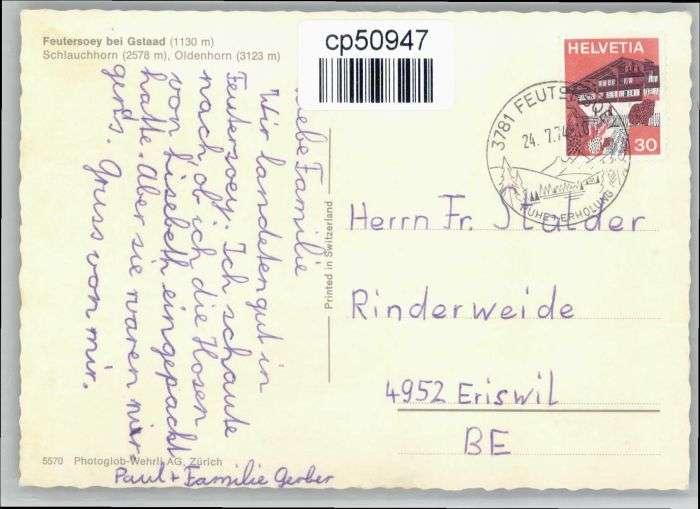 Feutersoey bei Gstaad (1130 m)
Schlauchhorn (2578 m), Oldenhorn (3123 m)
cp50947
HELVETIA
30
3781 FEUTERSOEY
24. 7.74
RUHE + ERHOLUNG
Liebe Familie
Wir landeten gut in
Feutersoey. Ich schaute
nach ob ich die Hosen
von Lisebeth eingepackt
hatte. Aber sie waren nir-
gends. Gruss von mir.
Paul + Familie Gerber
Printed in Switzerland
Herrn Fr. Stalder
Rinderweide
4952 Eriswil
BE
5570 Photoglob-Wehrli AG, Zürich